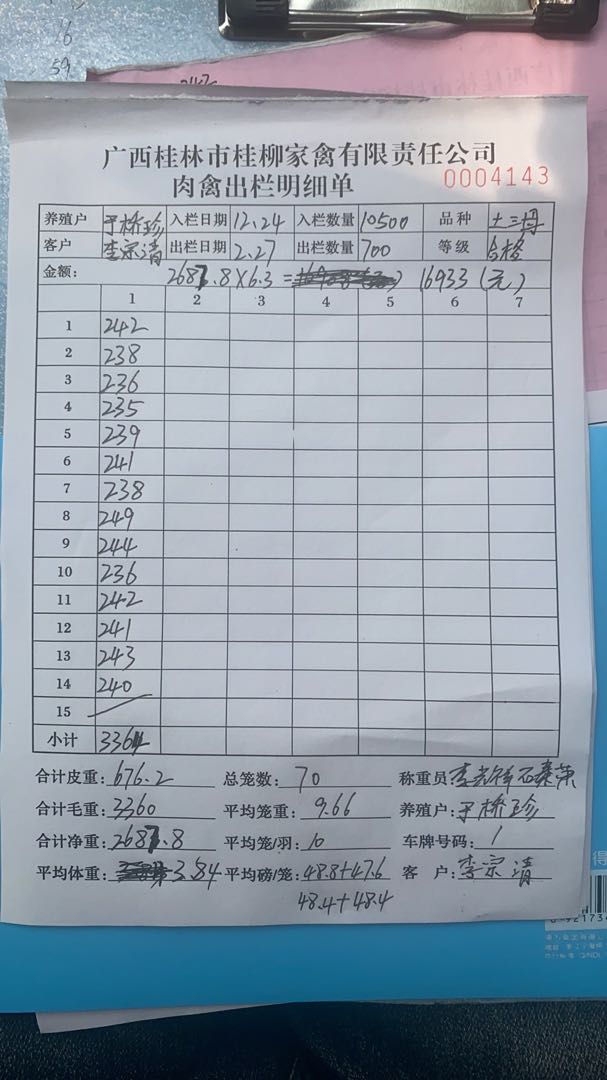 16
59
广西桂林市桂柳家禽有限责任公司
肉禽出栏明细单 0004143
养殖户 于桥珍 入栏日期 12.24 入栏数量 10500 品种 土三丹
客户 李宗清 出栏日期 2.27 出栏数量 700 等级 合格
金额: 2687.8×6.3= 16933(元)
1 2 3 4 5 6 7
1 242
2 238
3 236
4 235
5 239
6 241
7 238
8 249
9 244
10 236
11 242
12 241
13 243
14 240
15
小计 3364
合计皮重: 676.2 总笼数: 70 称重员:
合计毛重: 3360 平均笼重: 9.66 养殖户: 于桥珍
合计净重: 2687.8 平均笼/羽: 10 车牌号码: 1
平均体重: 3.84 平均磅/笼: 48.8+47.6 客 户: 李宗清
48.4+48.4